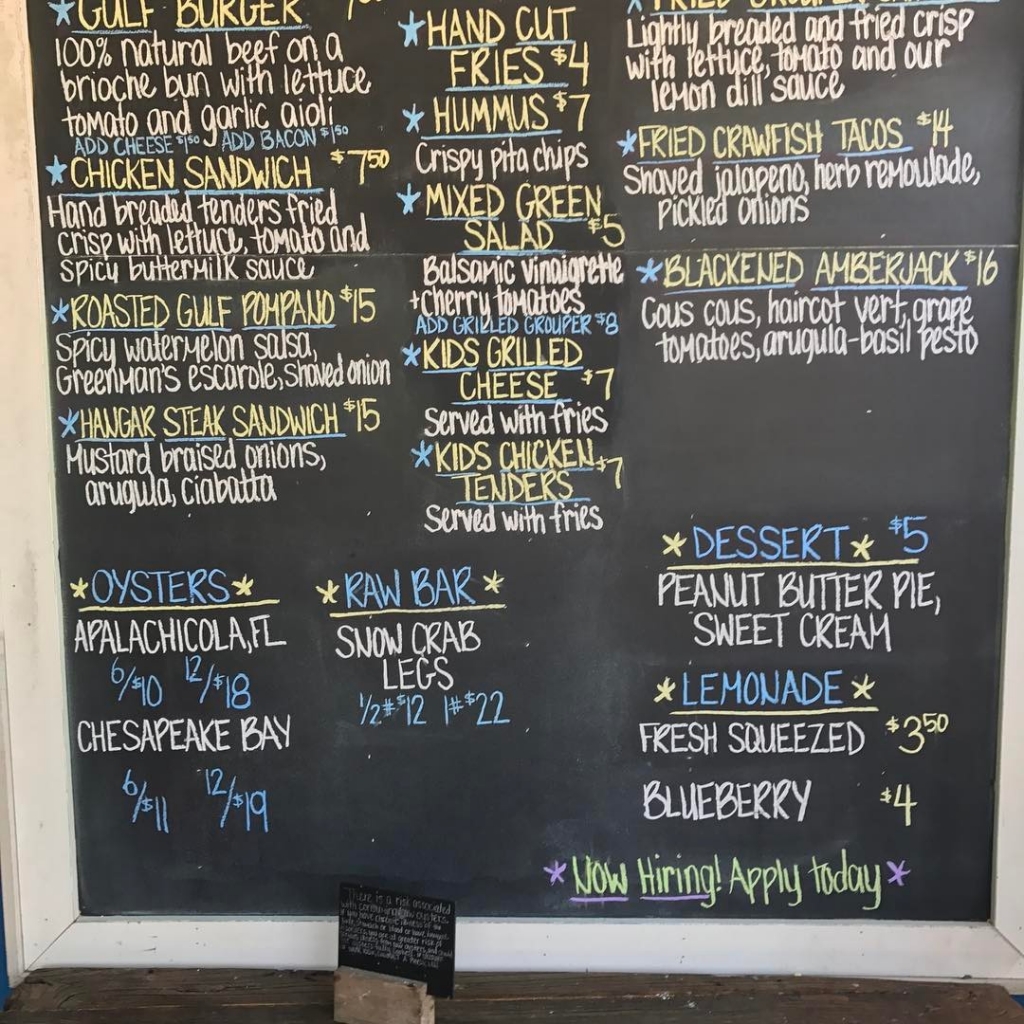 GULF BURGER
100% natural beef on a
brioche bun with lettuce
tomato and garlic aioli
ADD CHEESE $1.50 ADD BACON $1.50
CHICKEN SANDWICH $7.50
Hand breaded tenders fried
crisp with lettuce, tomato and
spicy buttermilk sauce
ROASTED GULF POMPANO $15
Spicy watermelon salsa,
Greenman's escarole, shaved onion
HANGAR STEAK SANDWICH $15
Mustard braised onions,
arugula, ciabatta
HAND CUT
FRIES $4
HUMMUS $7
Crispy pita chips
MIXED GREEN
SALAD $5
Balsamic vinaigrette
+cherry tomatoes
ADD GRILLED GROUPER $8
KIDS GRILLED
CHEESE $7
Served with fries
KIDS CHICKEN $7
TENDERS
Served with fries
FRIED GROUPER
Lightly breaded and fried crisp
with lettuce, tomato and our
lemon dill sauce
FRIED CRAWFISH TACOS $14
Shaved jalapeno, herb remoulade,
pickled onions
BLACKENED AMBERJACK $16
Cous cous, haircot vert, grape
tomatoes, arugula-basil pesto
OYSTERS
APALACHICOLA, FL
6/$10 12/$18
CHESAPEAKE BAY
6/$11 12/$19
RAW BAR
SNOW CRAB
LEGS
1/2# $12 1# $22
DESSERT $5
PEANUT BUTTER PIE,
SWEET CREAM
LEMONADE
FRESH SQUEEZED $3.50
BLUEBERRY $4
Now Hiring! Apply today
There is a risk associated
with consuming raw oysters.